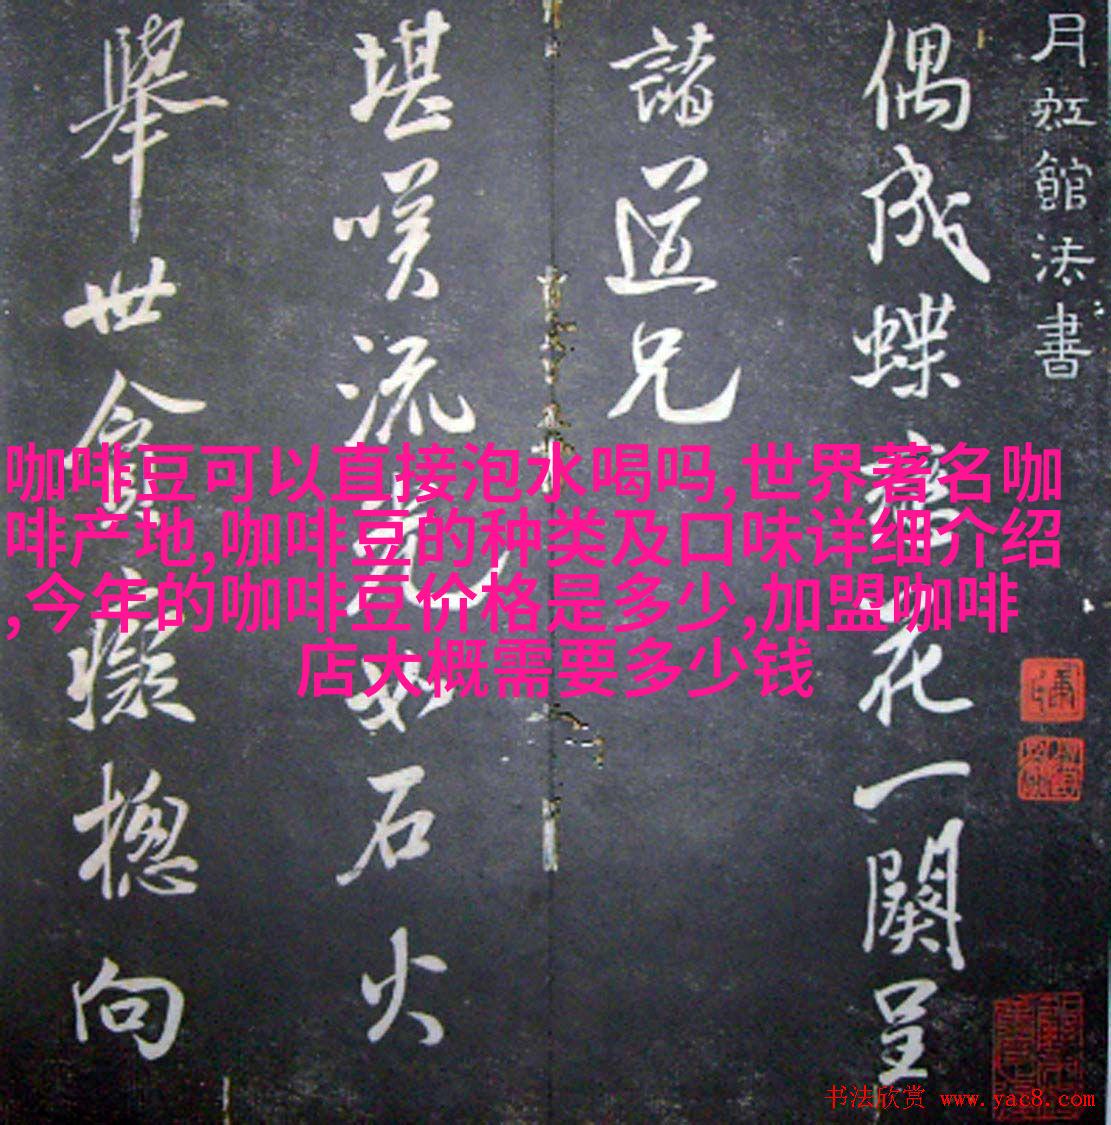 月虹館法書
偶成蝶戀花一闋呈
諸道兄
堪嘆流光如石火
舉世貪癡揔向
咖啡豆可以直接泡水喝吗,世界著名咖
啡产地,咖啡豆的种类及口味详细介绍
,今年的咖啡豆价格是多少,加盟咖啡
店大概需要多少钱
书法欣赏 www.yac8.com